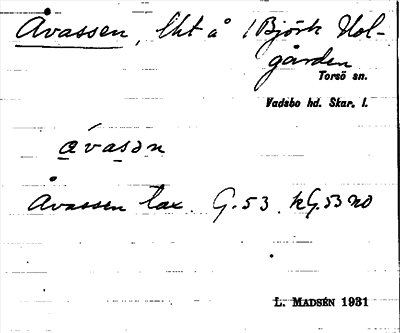 Åvassen, Sht å 1 Björk Hol-
gården
Torsö sn.
Vadsbo hd. Skar. l.
ávasən
Åvassen tax. G.53. kG.53 no
L. MADSÉN 1931